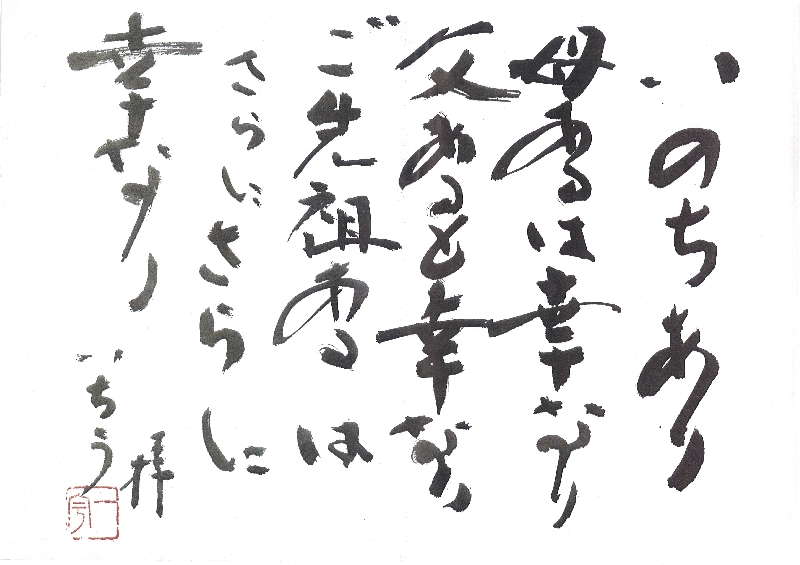 いのちあり
母あるは幸なり
父あるも幸なり
ご先祖あるは
さらにさらに
幸なり
いちろ 拝